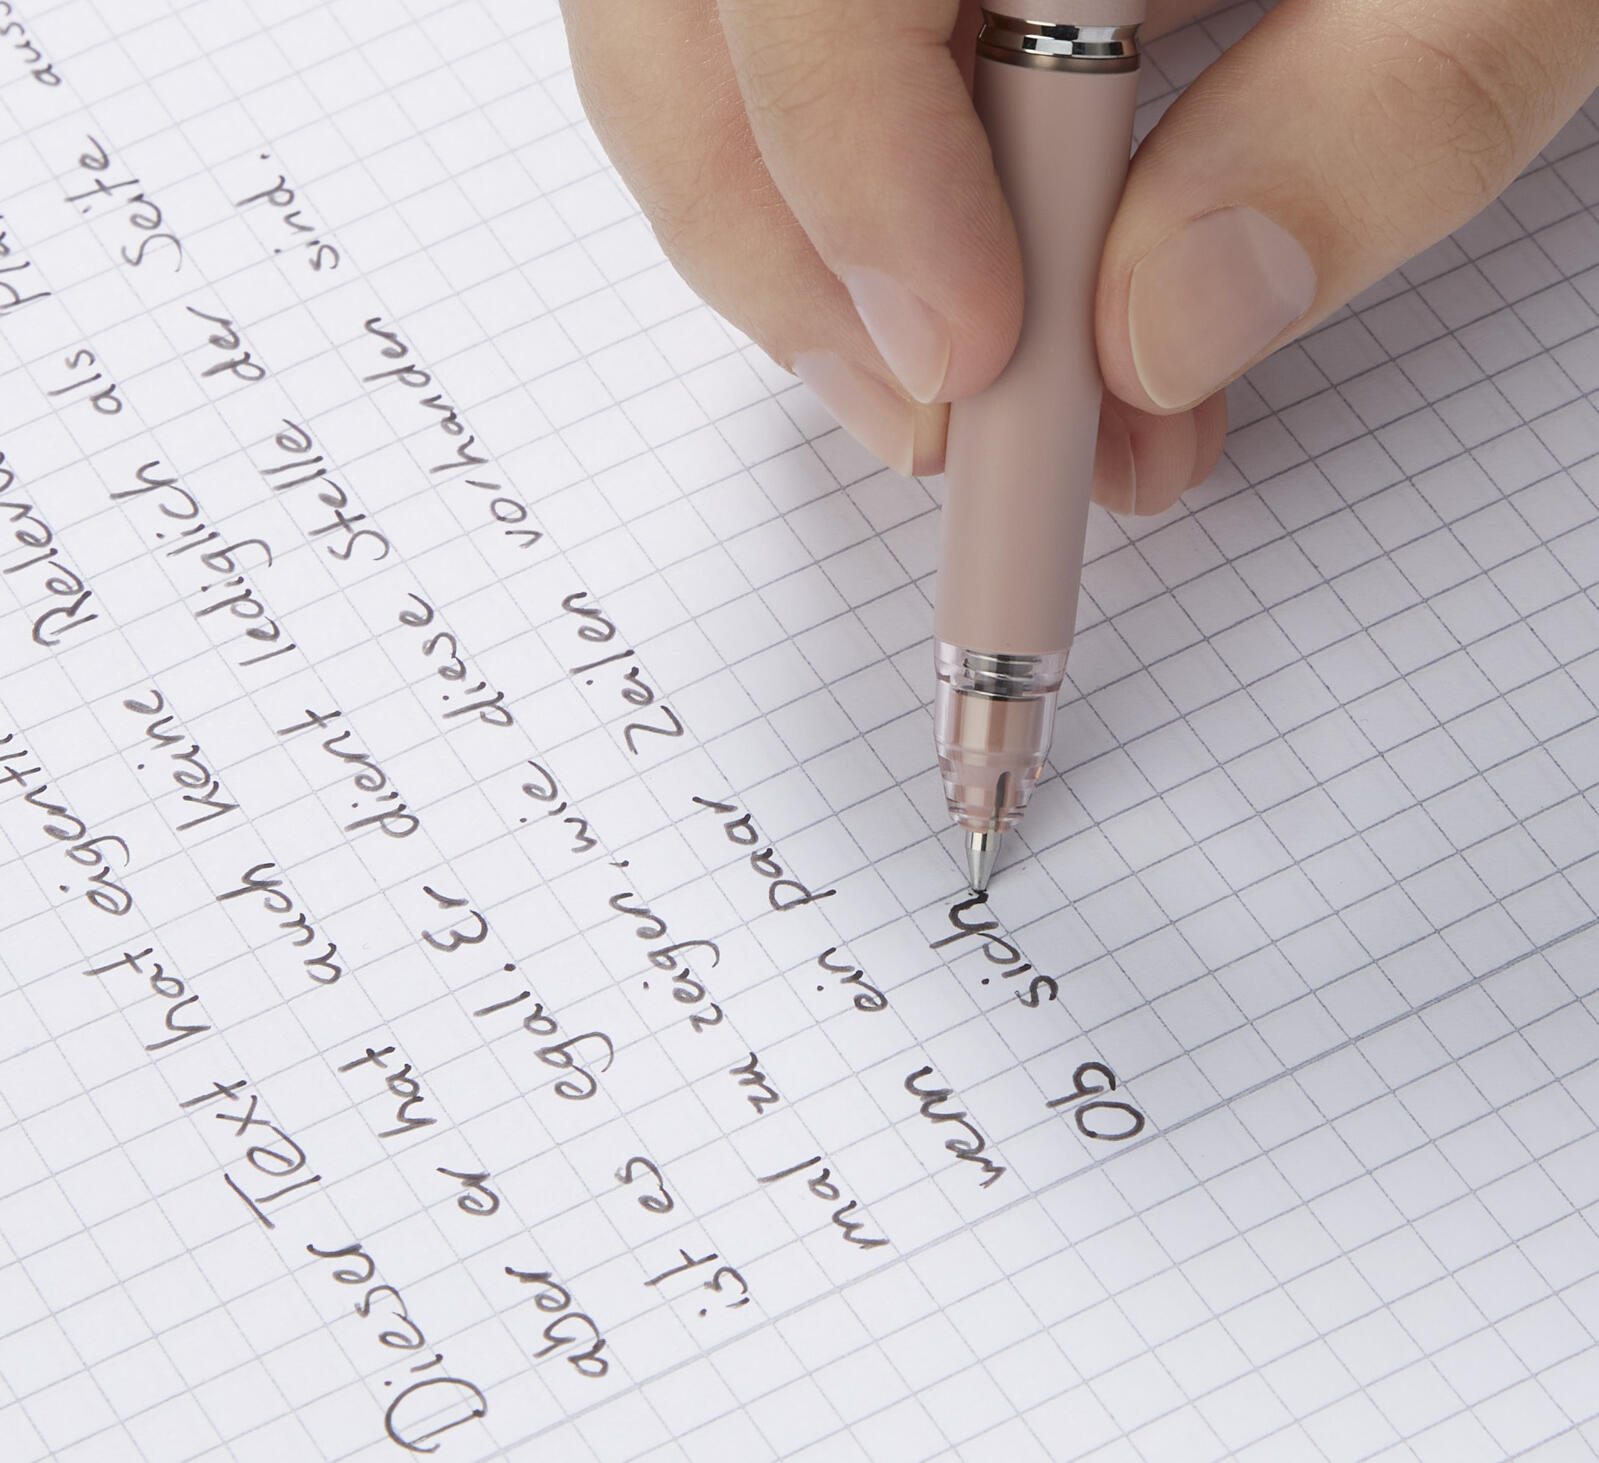 Dieser Text hat eigentl
aber er hat auch keine Relev
ist es egal. Er dient lediglich als Pla
mal zu zeigen, wie diese Stelle der Seite aus
wenn ein paar Zeilen vorhanden sind.
Ob sich